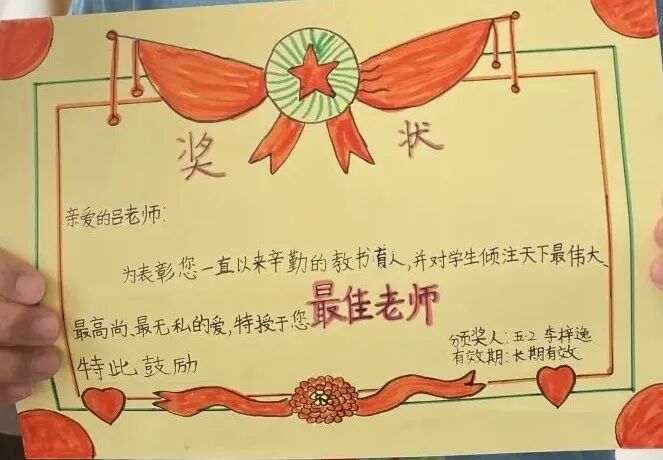 奖状
亲爱的吕老师:
为表彰您一直以来辛勤的教书育人,并对学生倾注天下最伟大、
最高尚、最无私的爱,特授于您最佳老师
特此鼓励
颁奖人:五·2 李梓逸
有效期:长期有效